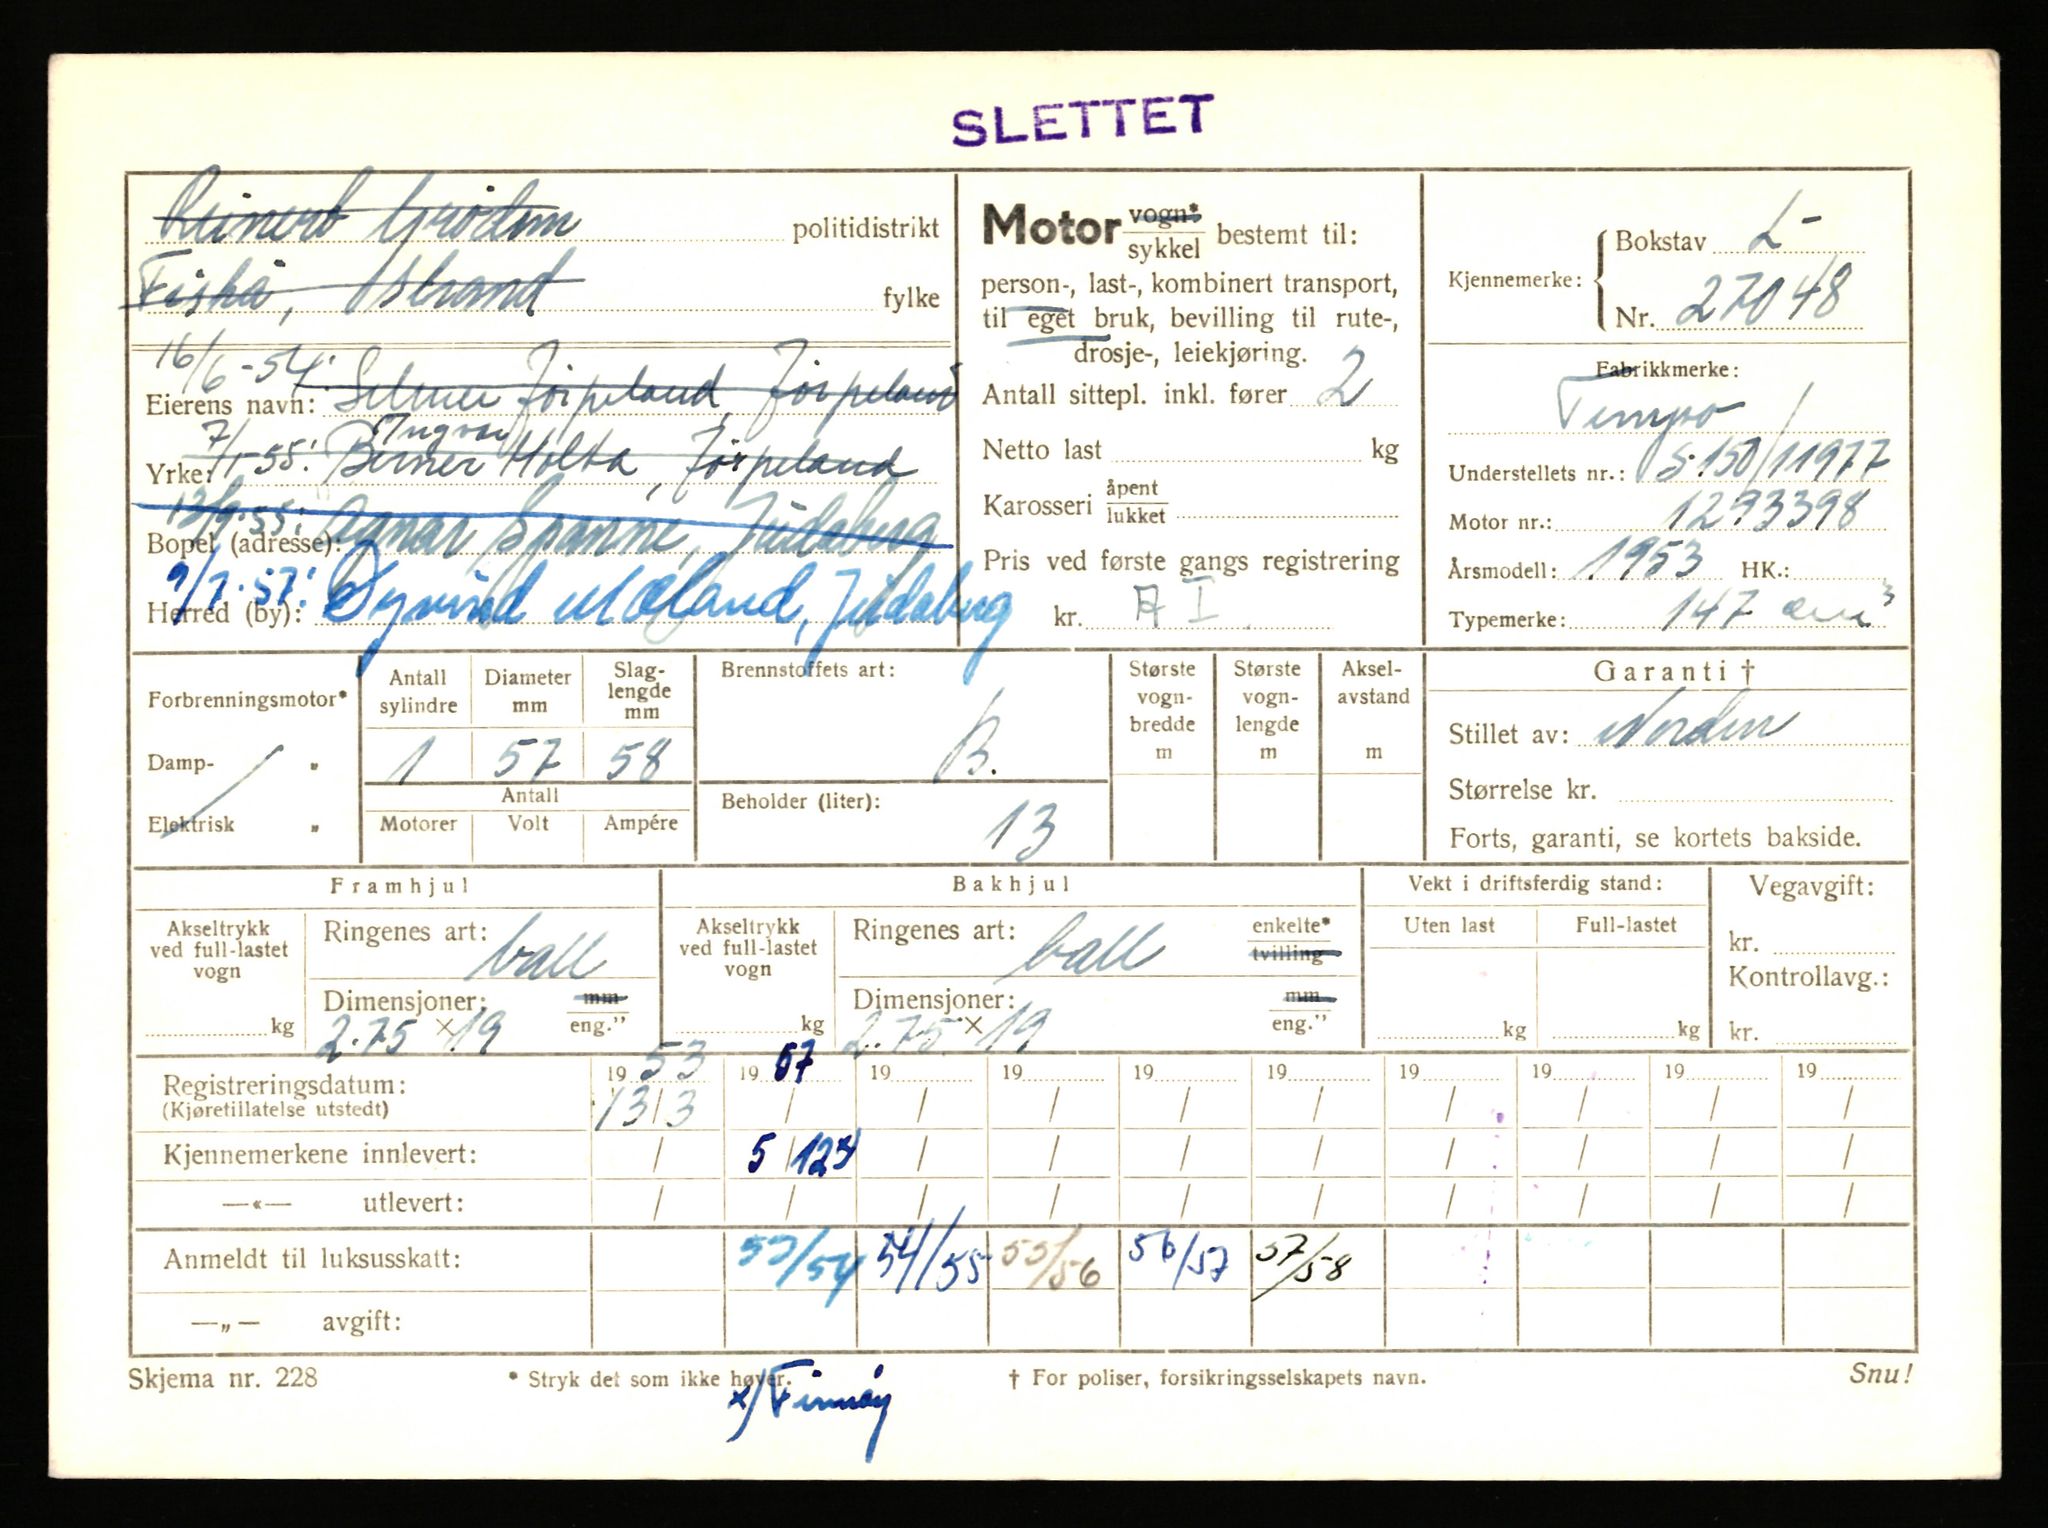 SLETTET
Reinert Grödem politidistrikt
Fiskå, Strand fylke
16/6-54: Selmer Jörpeland, Jörpeland
Eierens navn:
Ingvar
7/1-55: Berner Holta, Jörpeland
Yrke:
13/9-55: Agnar Spanne, Judaberg
Bopel (adresse):
9/7-57: Øyvind Mæland, Judaberg
Herred (by):
Motor vogn* sykkel bestemt til:
person-, last-, kombinert transport,
til eget bruk, bevilling til rute-,
drosje-, leiekjøring.
Antall sittepl. inkl. fører 2
Netto last kg
Karosseri åpent lukket
Pris ved første gangs registrering
kr. A I
Kjennemerke: Bokstav L-
Nr. 27048
Fabrikkmerke:
Tempo
Understellets nr.: S.150/11977
Motor nr.: 1293398
Årsmodell: 1953 HK.:
Typemerke: 147 cm³
Forbrenningsmotor*
Damp- "
Elektrisk "
Antall sylindre 1
Diameter mm 57
Slaglengde mm 58
Antall
Motorer Volt Ampére
Brennstoffets art: B.
Beholder (liter): 13
Største vognbredde m
Største vognlengde m
Akselavstand m
Garanti †
Stillet av: Norden
Størrelse kr.
Forts, garanti, se kortets bakside.
Framhjul
Akseltrykk ved full-lastet vogn kg
Ringenes art: ball
Dimensjoner: mm eng."
2.75 × 19
Bakhjul
Akseltrykk ved full-lastet vogn kg
Ringenes art: ball enkelte* tvilling
Dimensjoner: mm eng."
2.75 × 19
Vekt i driftsferdig stand:
Uten last Full-lastet
kg kg
Vegavgift:
kr.
Kontrollavg.:
kr.
Registreringsdatum: 1953 1957 19 19 19 19 19 19 19 19
(Kjøretillatelse utstedt) 13/3 / / / / / / / / /
Kjennemerkene innlevert: / 5/12 / / / / / / / /
—«— utlevert: / / / / / / / / / /
Anmeldt til luksusskatt: 53/54 54/55 55/56 56/57 57/58
—„— avgift:
Skjema nr. 228 * Stryk det som ikke høver. † For poliser, forsikringsselskapets navn. Snu!
x) Finnöy